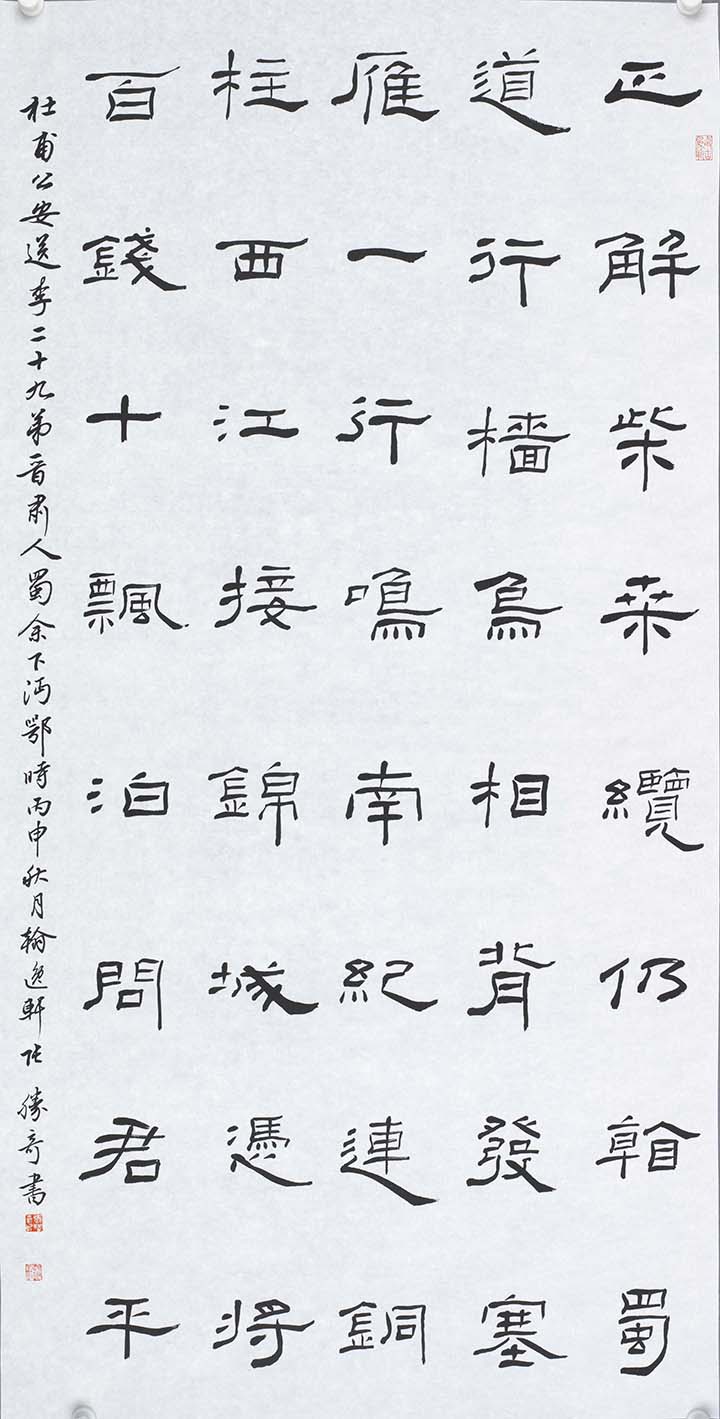 正解柴桑纜仍看蜀
道行檣烏相背發塞
雁一行鳴南紀連銅
柱西江接錦城憑將
百錢十飄泊問君平
杜甫公安送李二十九弟晉肅入蜀余下沔鄂時丙申秋月翰逸軒張勝奇書